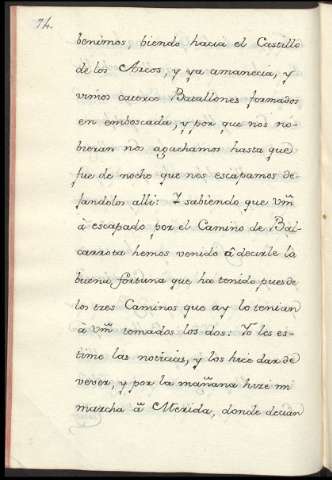 74.
benimos, biendo hacia el Castillo
de los Arcos, y ya amanecia, y
vimos catorce Batallones formados
en emboscada, y por que nos no-
bieran nos agachamos hasta que
fue de noche que nos escapamos de-
jandolos alli: Y sabiendo que Vm̃
à escapado por el Camino de Bal-
carrota hemos venido â decirle la
buena fortuna que ha tenido pues de
los tres Caminos que ay lo tenian
à Vm̃ tomados los dos: Yo les es-
time las noticias, y los hice dar de
vever, y por la mañana hize mi
marcha â Merida, donde decian